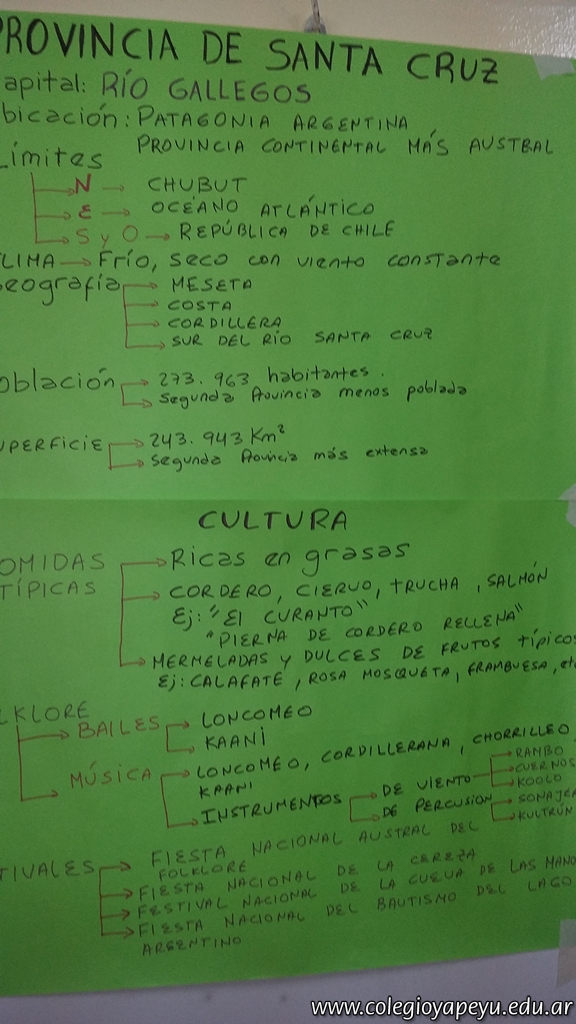 PROVINCIA DE SANTA CRUZ
apital: RÍO GALLEGOS
bicación: PATAGONIA ARGENTINA
PROVINCIA CONTINENTAL MÁS AUSTRAL
Límites
N → CHUBUT
E → OCÉANO ATLÁNTICO
S y O → REPÚBLICA DE CHILE
LIMA → Frío, seco con viento constante
eografía → MESETA
→ COSTA
→ CORDILLERA
→ SUR DEL RÍO SANTA CRUZ
oblación → 273.963 habitantes.
→ Segunda Provincia menos poblada
UPERFICIE → 243.943 Km²
→ Segunda Provincia más extensa
CULTURA
OMIDAS TÍPICAS → Ricas en grasas
→ CORDERO, CIERVO, TRUCHA, SALMÓN
Ej: "El CURANTO"
"PIERNA DE CORDERO RELLENA"
→ MERMELADAS Y DULCES DE FRUTOS típicos
Ej: CALAFATE, ROSA MOSQUETA, FRAMBUESA, etc
LKLORE
→ BAILES → LONCOMEO
→ KAANI
→ MÚSICA → LONCOMEO, CORDILLERANA, CHORRILLERO,
KAANI
→ INSTRUMENTOS → DE VIENTO → RAMBO
→ CUERNOS
→ KOOLO
→ DE PERCUSION → SONAJE
→ KULTRÚN
TIVALES → FIESTA NACIONAL AUSTRAL DEL
FOLKLORE
→ FIESTA NACIONAL DE LA CEREZA
→ FESTIVAL NACIONAL DE LA CUEVA DE LAS MANO
→ FIESTA NACIONAL DEL BAUTISMO DEL LAGO
ARGENTINO
www.colegioyapeyu.edu.ar